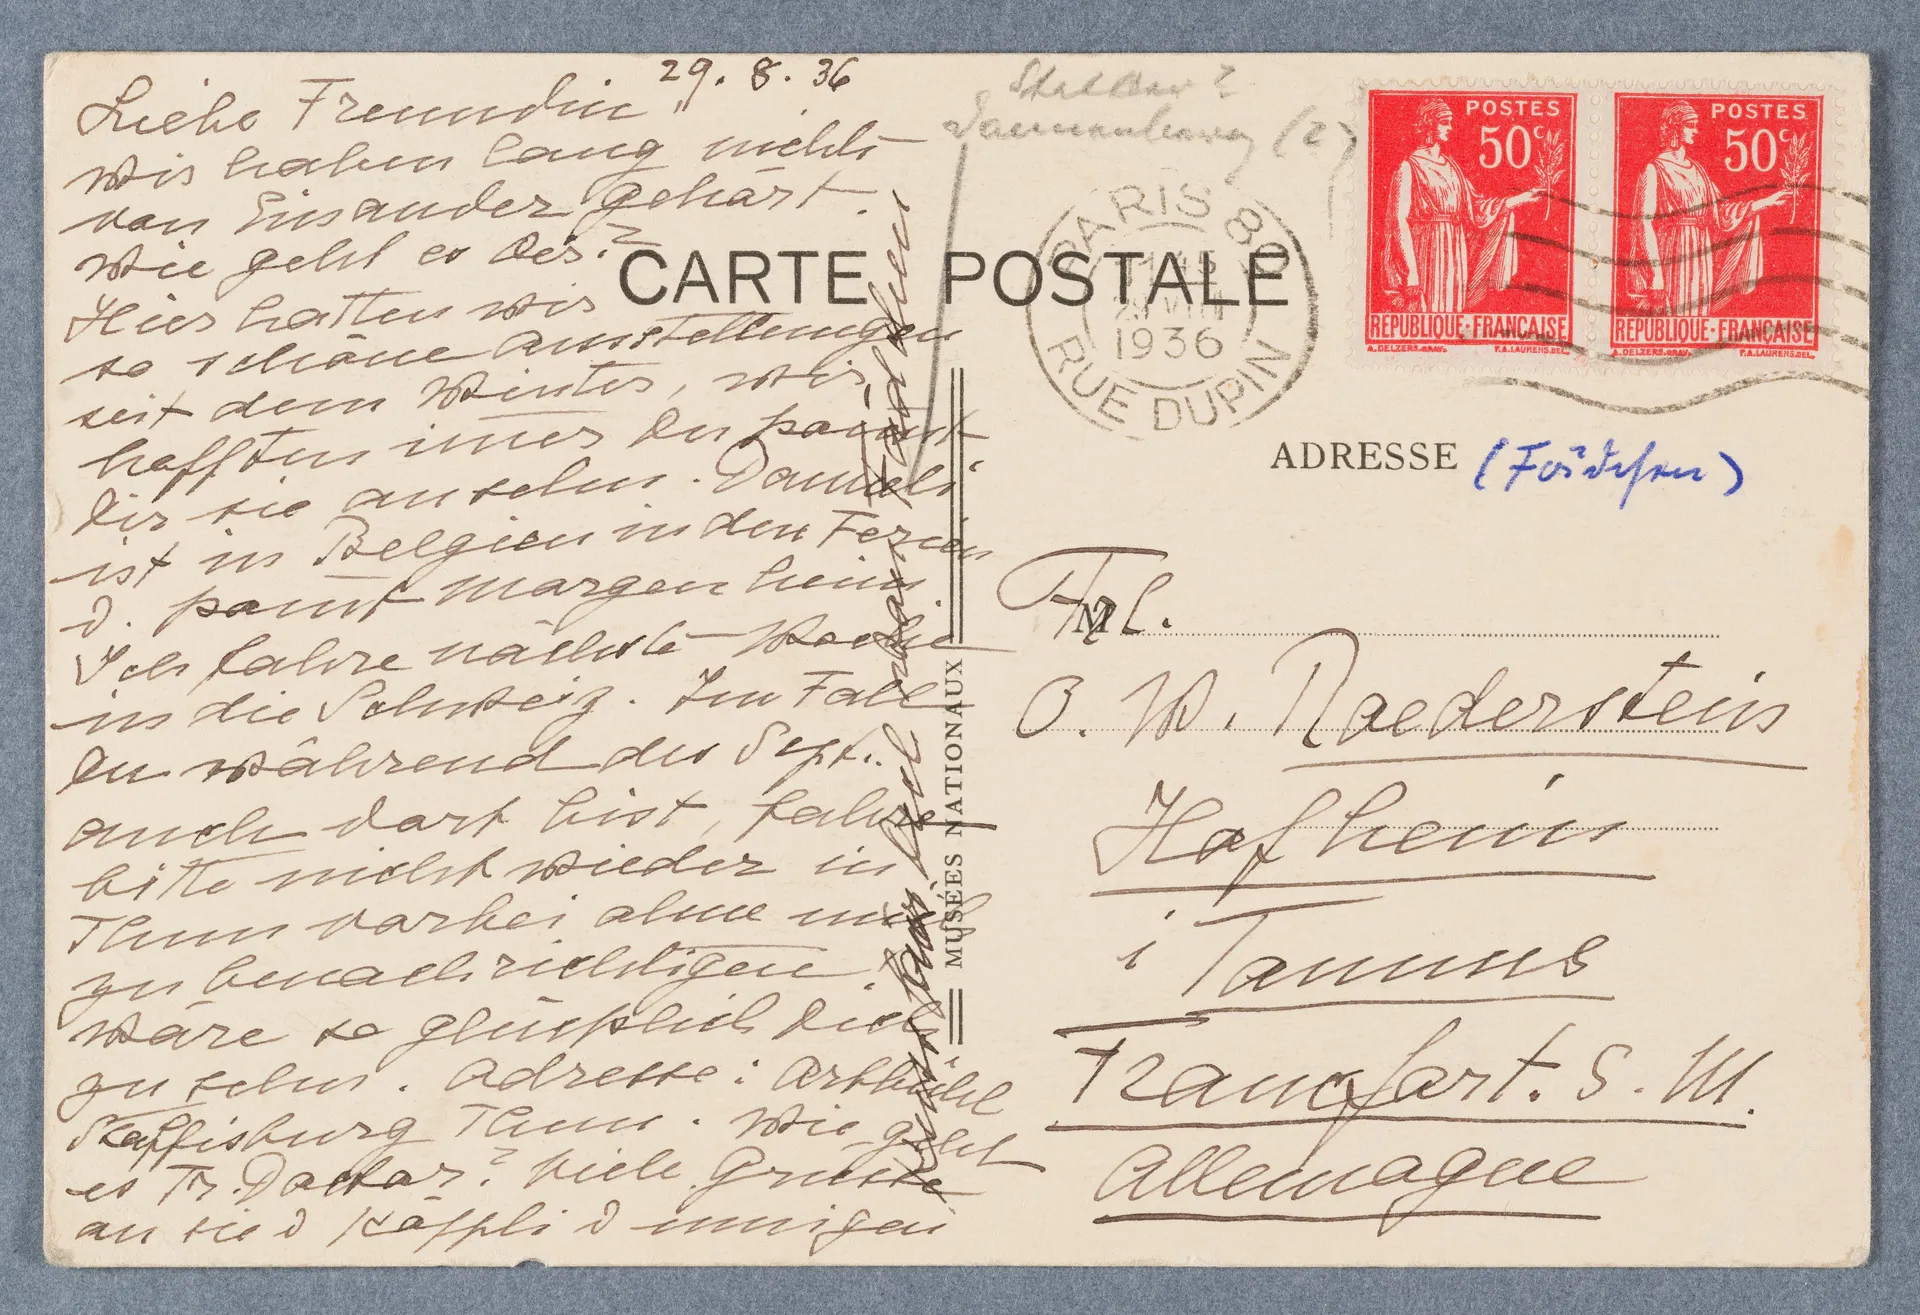 29.8.36
Liebe Freundin
wir haben lang nichts
von Einander gehört.
Wie geht es Dir?
Hier hatten wir
so schöne Ausstellungen
seit dem Winter, wir
hofften immer Du kommst
Dir sie ansehn. Dannieli
ist in Belgien in den Ferien
d. kommt morgen heim
Ich fahre nächste Woche
in die Schweiz. Im Fall
Du während des Sept.
auch dort bist, fahre
bitte nicht wieder in
Thun vorbei ohne mich
zu benachrichtigen.
wäre so glücklich Dich
zu sehn. Adresse:
Steffisburg Thun. Wie geht
es Fr. Doctor? Viele Grüsse
an sie d Käppli d innigen
CARTE POSTALE
MUSÉES NATIONAUX
(2)
PARIS 80
1936
RUE DUPIN
POSTES
50c
REPUBLIQUE·FRANÇAISE
A.DELZERS.GRAV. P.A.LAURENS.DEL.
POSTES
50c
REPUBLIQUE·FRANÇAISE
A.DELZERS.GRAV. P.A.LAURENS.DEL.
ADRESSE
M
Frl.
O. W. Roederstein
Hofheim
i Taunus
Francfort. s. M.
Allemagne